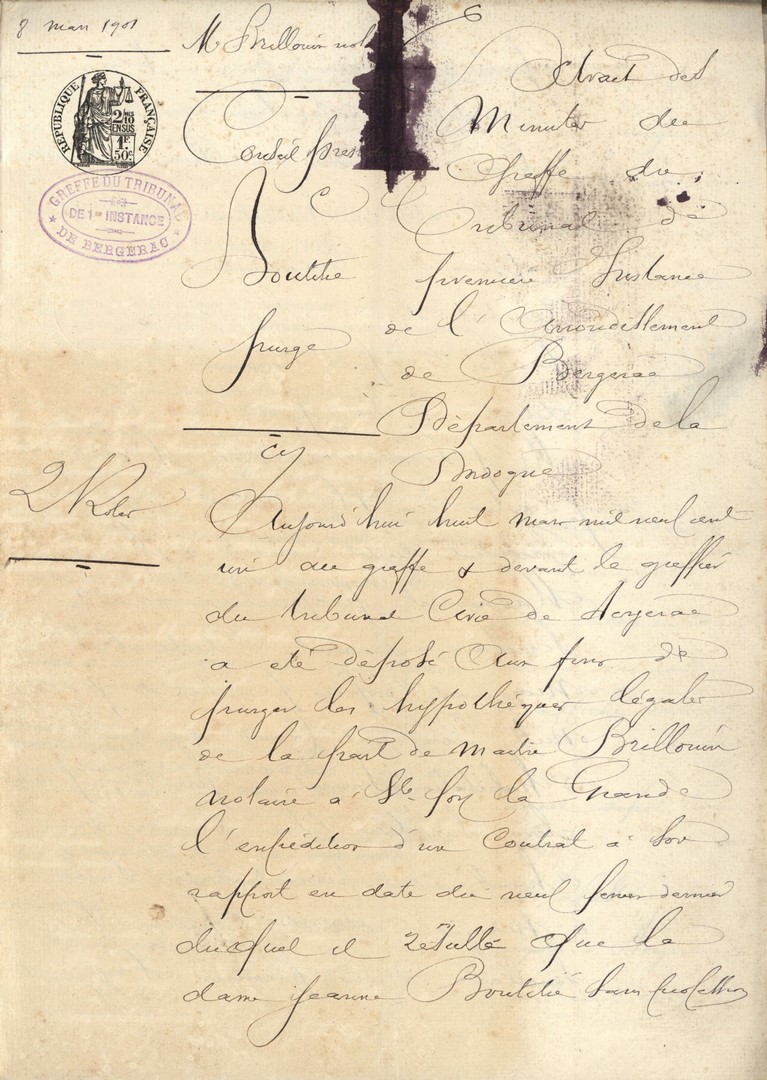 8 mars 1901
Mᵉ Brillouin not
RÉPUBLIQUE FRANÇAISE
2/10 EN SUS
1F. 50c
GREFFE DU TRIBUNAL
DE 1re INSTANCE
DE BERGERAC
Boutitié
purge
2 Roles
Extrait des
Minutes du
Greffe du
Tribunal de
première Instance
de l'arrondissement
de Bergerac
Département de la
Dordogne
Aujourd'hui huit mars mil neuf cent
un au greffe & devant le greffier
du tribunal Civil de Bergerac
a été déposé aux fins de
purger les hypothèques légales
de la part de Maître Brillouin
notaire à Ste foy la Grande
l'expédition d'un Contrat à son
rapport en date du neuf dernier
duquel il résulte que la
dame Jeanne Boutitié sans profession